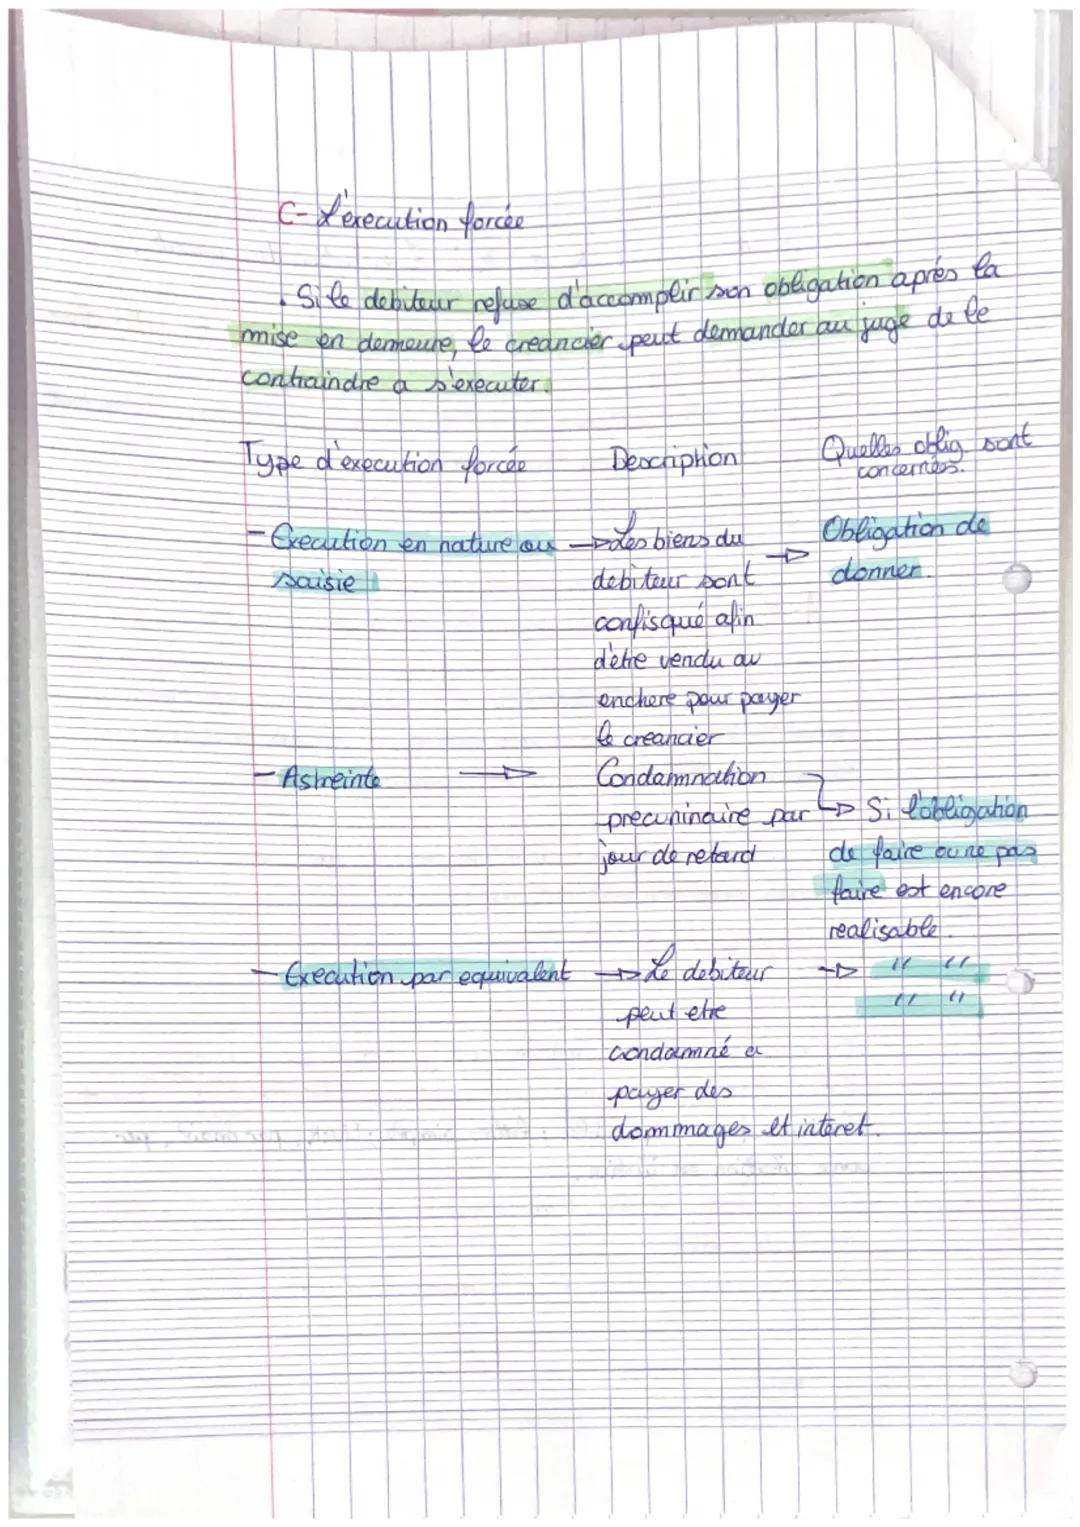 C- L'execution forcée
. Si le debiteur refuse d'accomplir son obligation aprés la
mise en demeure, le creancier peut demander au juge de le
contraindre a s'executer.
Type d'execution forcée Description Quelles oblig. sont
concernées.
- Execution en nature ou → Les biens du → Obligation de
saisie debiteur sont donner.
confisqué afin
d'etre vendu au
enchere pour payer
le creancier
- Astreinte → Condamnation
precuninaire par → Si l'obligation
jour de retard de faire ou ne pas
faire est encore
realisable.
- Execution par equivalent → Le debiteur → " "
peut etre " "
condamné a
payer des
dommages et interet.